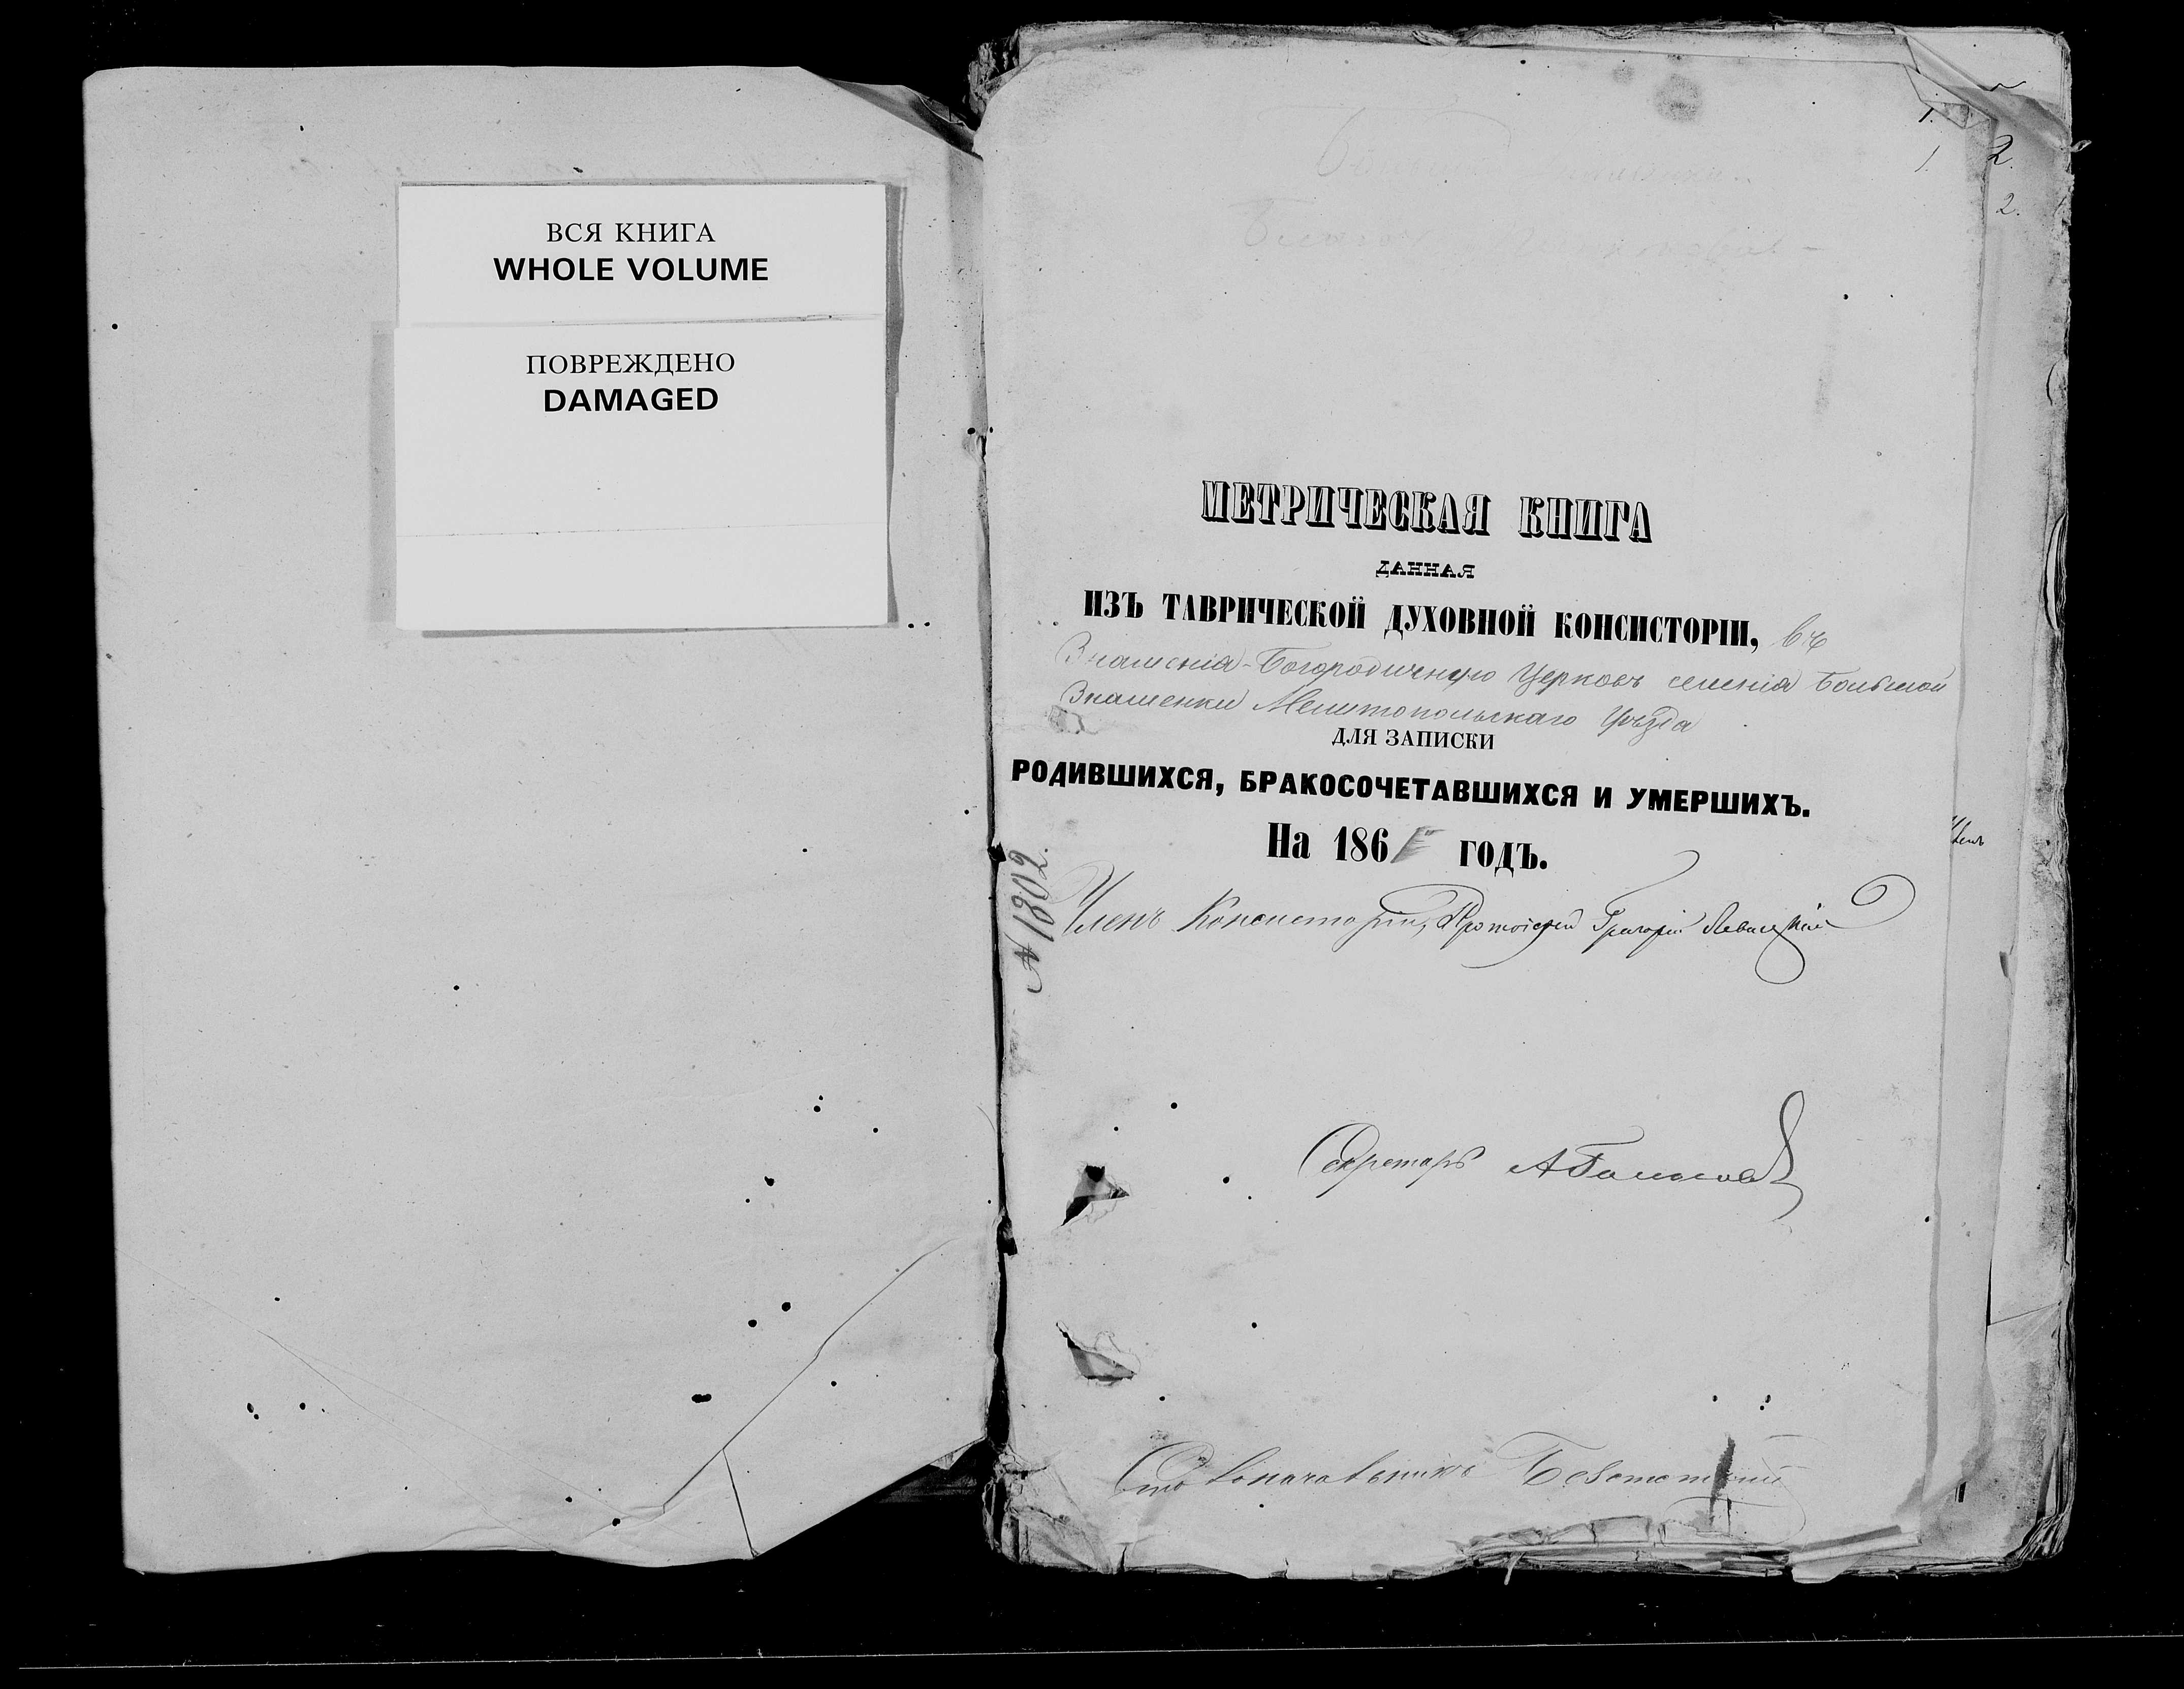 ВСЯ КНИГА
WHOLE VOLUME
ПОВРЕЖДЕНО
DAMAGED
1.
1.
2.
2.
МЕТРИЧЕСКАЯ КНИГА
ДАННАЯ
ИЗЪ ТАВРИЧЕСКОЙ ДУХОВНОЙ КОНСИСТОРІИ, въ
Знаменія-Богородичную Церковь селенія Большой
Знаменки Мелитопольскаго Уѣзда
ДЛЯ ЗАПИСКИ
РОДИВШИХСЯ, БРАКОСОЧЕТАВШИХСЯ И УМЕРШИХЪ.
На 186 ГОДЪ.
№ 1302.
Членъ Консисторіи, Протоіерей Григорій Левицкій
Секретарь
Столоначальникъ